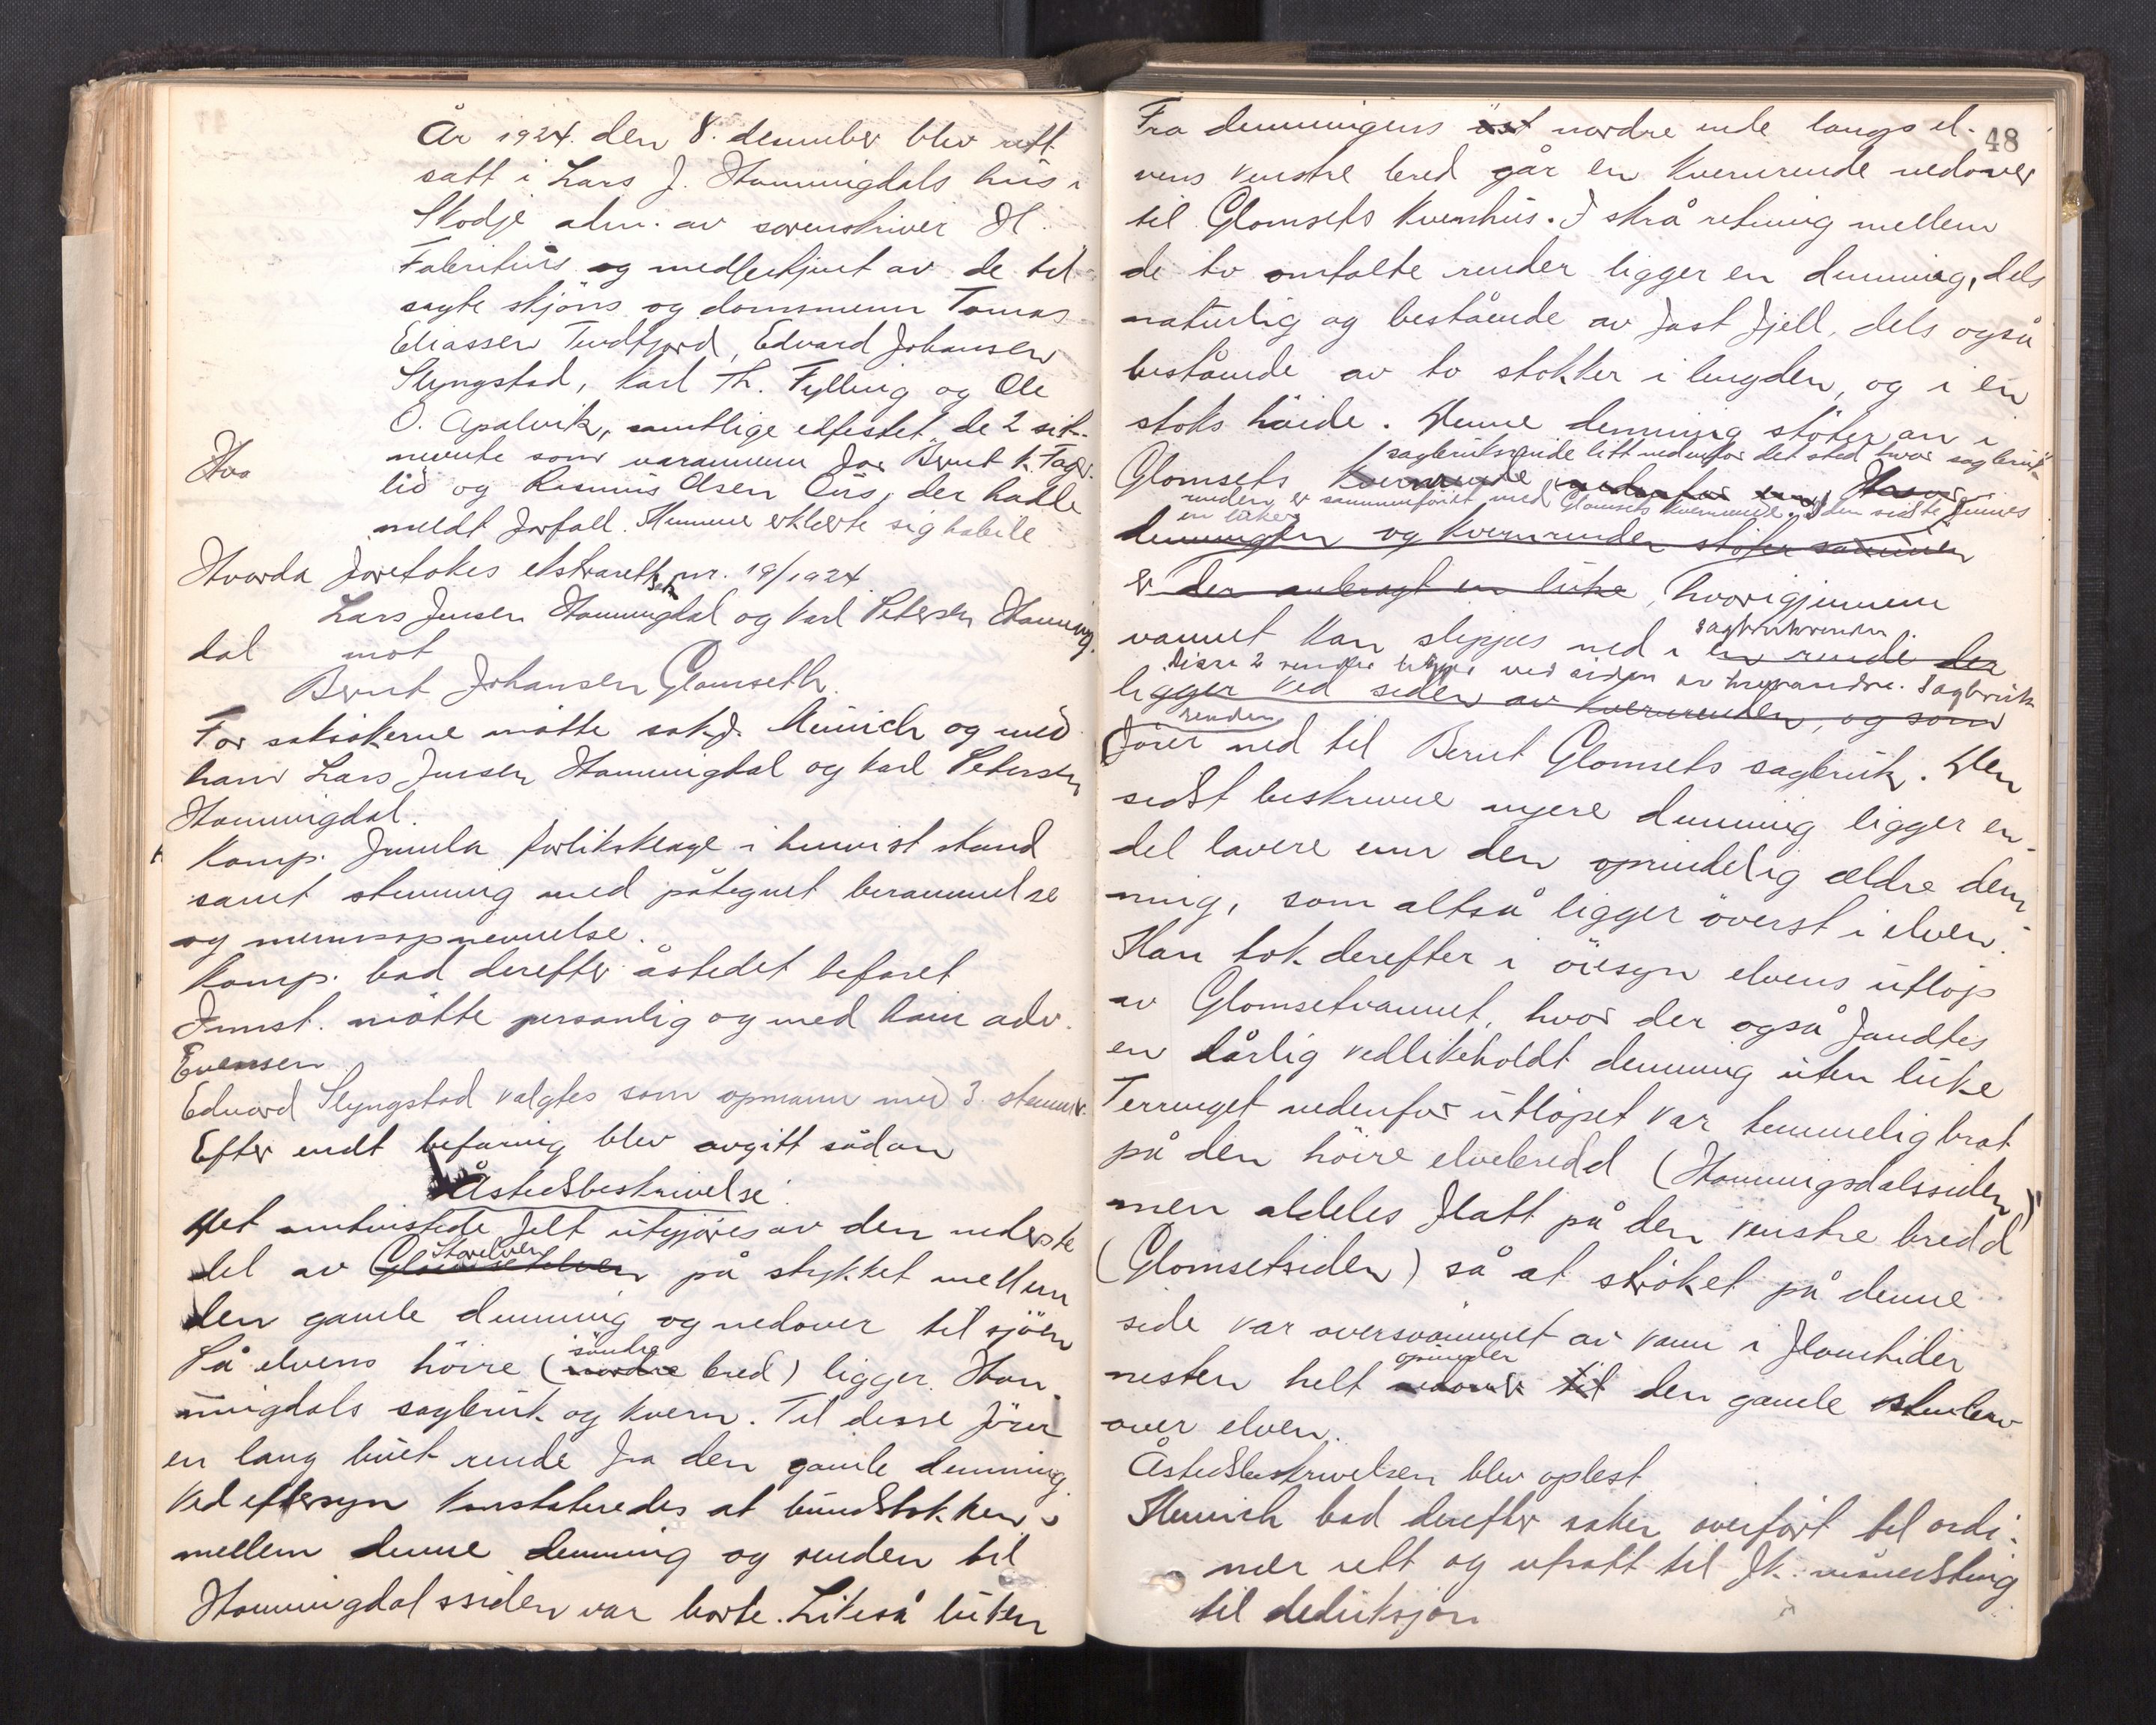 År 1924. den 8. desember blev rett
satt i Lars J. Hammingdals hus i
Skodje adm. av sorenskriver H.
Fabritius og medbetjent av de til-
sagte skjøns og domsmenn Tomas
Eliassen Tundfjord, Edvard Johansen
Slyngstad, Karl Th. Fylling og Ole
O. Apalvik, samtlige edfestet, de 2 sist-
Hvo
nevnte som varamenn for Bernt K. Fager-
lid og Rasmus Olsen Øus, der hadde
meldt forfall. Mennene erklærte sig habile
Hvorda foretokes ekstrarettssak nr. 19/1924
Lars Jensen Hammingdal og Karl Petersen Hamming-
dal mot
Bernt Johansen Glomseth.
For saksøkerne møtte sakf. Munich og med
ham Lars Jensen Hammingdal og Karl Petersen
Hammingdal.
Komp. fremla forliksklage i henvist stand
samt stevning med påtegnet berammelse
og mennsopnevnelse.
Komp. bad derefter åstedet befaret
Innst. møtte personlig og med ham adv.
Evensen
Edvard Slyngstad valgtes som opmann med 3 stemmer.
Efter endt befaring blev avgitt sådan
Åstedsbeskrivelse.
Det omtvistede felt utgjøres av den nederste
Storelven
del av Glomsetelven på stykket mellem
den gamle demning og nedover til sjøen
søndre
På elvens høire (nordre bred) ligger Ham-
mingdals sagbruk og kvern. Til disse fører
en lang buet rende fra den gamle demning.
Ved eftersyn konstateredes at bundstokken
mellem denne demning og renden til
Hammingdalssiden var borte. Likeså luken
48
Fra demningens øst nordre ende langs el-
vens venstre bred går en kvernrende nedover
til Glomsets kvernhus. I skrå retning mellem
de to omtalte render ligger en demning, dels
naturlig og bestående av fast fjell, dels også
bestående av to stokker i lengden, og i en
stoks høide. Denne demning støter an i
sagbruksrende litt nedenfor det sted hvor sagbruk-
Glomsets kvernrende nedenfor
renden er sammenføiet med Glomsets kvernrende. I den siste finnes
en luke
demningen og kvernrenden støter sammen
er der anbragt en luke, hvorigjennem
sagbruksrenden.
vannet kan slippes ned i en rende der
Disse 2 render ligger ved siden av hverandre. Sagbruk-
ligger ved siden av kvernrenden, og som
renden
fører ned til Bernt Glomsets sagbruk. Den
sidst beskrevne nyere demning ligger en
del lavere enn den oprindelig ældre dem-
ning, som altså ligger øverst i elven.
Man tok derefter i øiesyn elvens utløp
av Glomsetvannet, hvor der også fandtes
en dårlig vedlikeholdt demning uten luke
Terrenget nedenfor utløpet var temmelig brat
på den høire elvebredd (Hammingsdalssiden)
men aldeles flatt på den venstre bredd
(Glomsetsiden) så at strøket på denne
side var oversvømmet av vann i flomtider
nesten helt nedover til den gamle
over elven.
Åstedsbeskrivelsen blev oplest
Munich bad derefter saken overført til ordi-
nær rett og utsatt til fk. månedsting
til deduksjon